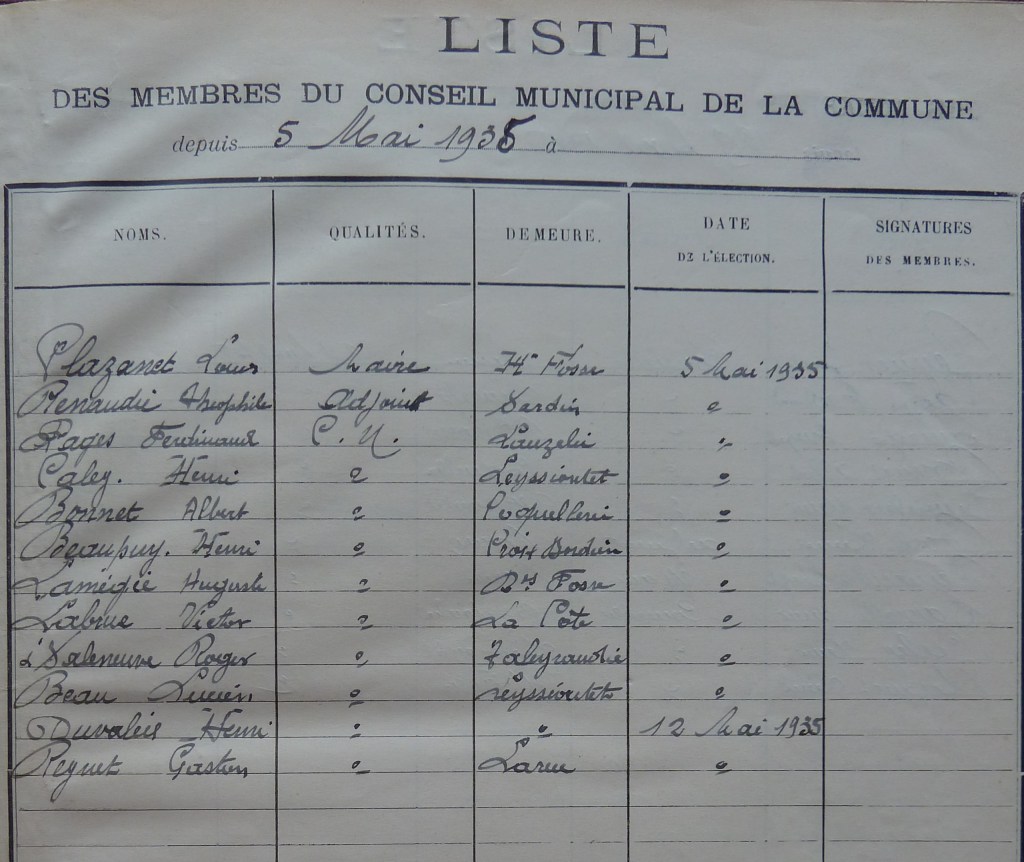 LISTE
DES MEMBRES DU CONSEIL MUNICIPAL DE LA COMMUNE
depuis 5 Mai 1935 à
NOMS. QUALITÉS. DEMEURE. DATE DE L'ÉLECTION. SIGNATURES DES MEMBRES.
Plazanet Louis Maire Hte Fosse 5 Mai 1935
Renaudie Théophile Adjoint Sardin "
Pages Ferdinand C. M. Lauzelie "
Caley. Henri " Leyssioutet "
Bonnet Albert " Poquellerie "
Beaupuy. Henri " Croix Bordein "
Lamégie Auguste " Bse Fosse "
Labrue Victor " La Côte "
d'Saleneuve Roger " Taleyrandie "
Beau Lucien " Leyssioutet "
Duvaleis Henri " " 12 Mai 1935
Peynet Gaston " Larue "